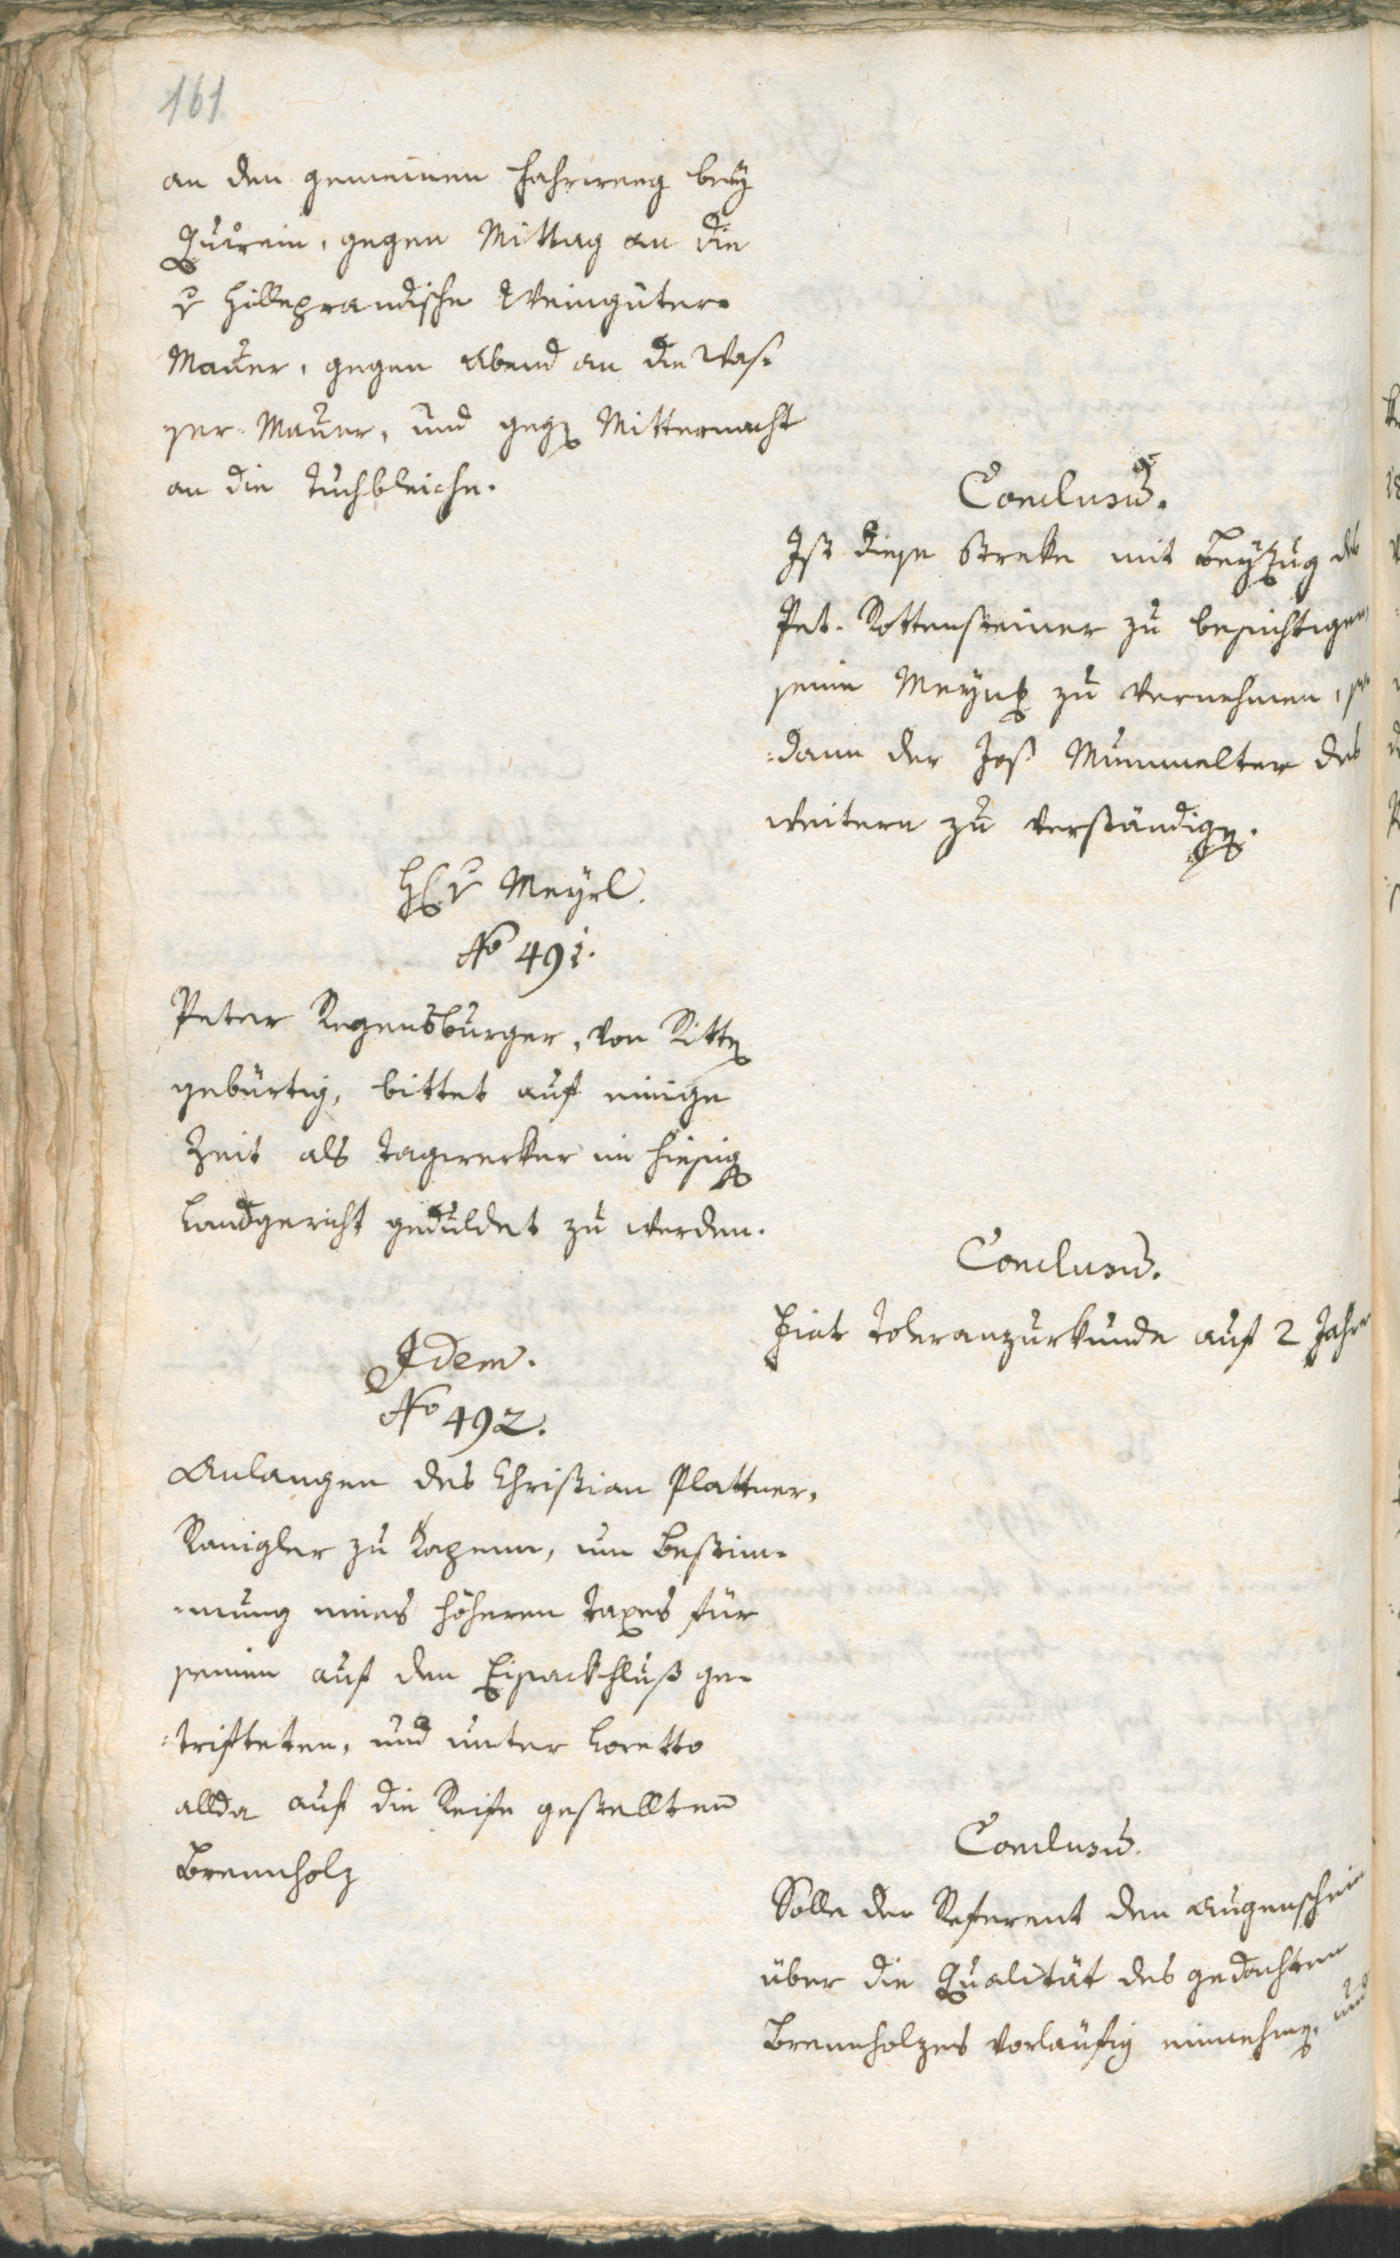 161
an den gemeinen Fahrweeg bey
Quirein, gegen Mittag an die
v Hilleprandische Weingüter-
Mauer, gegen Abend an die Was-
ser-Mauer, und gegen Mitternacht
an die Tuchbleiche.
Conclusū.
Ist diese Streke mit Beyzug des
Pet. Rottensteiner zu besichtigen,
seine Meynung zu vernehmen, so-
:dann der Joß Mumelter des
weitern zu verständigen.
H v Meyrl.
No 491.
Peter Regensburger, von Ritten
gebürtig, bittet auf einige
Zeit als Tagwerker im hiesigen
Landgericht geduldet zu werden.
Conclusū.
Fiat Toleranzurkunde auf 2 Jahre
Idem.
No 492.
Anlangen des Christian Plattner,
Ranigler zu Kapenn, um Bestim-
-mung eines höheren Taxes für
seinen auf den Eisackfluß ge-
:trifteten, und unter Loretto
allda auf die Reife gestellten
Brennholz
Conclusū.
Solle der Referent den Augenschein
über die Qualität des gedachten
Brennholzes vorläufig einnehmen, und